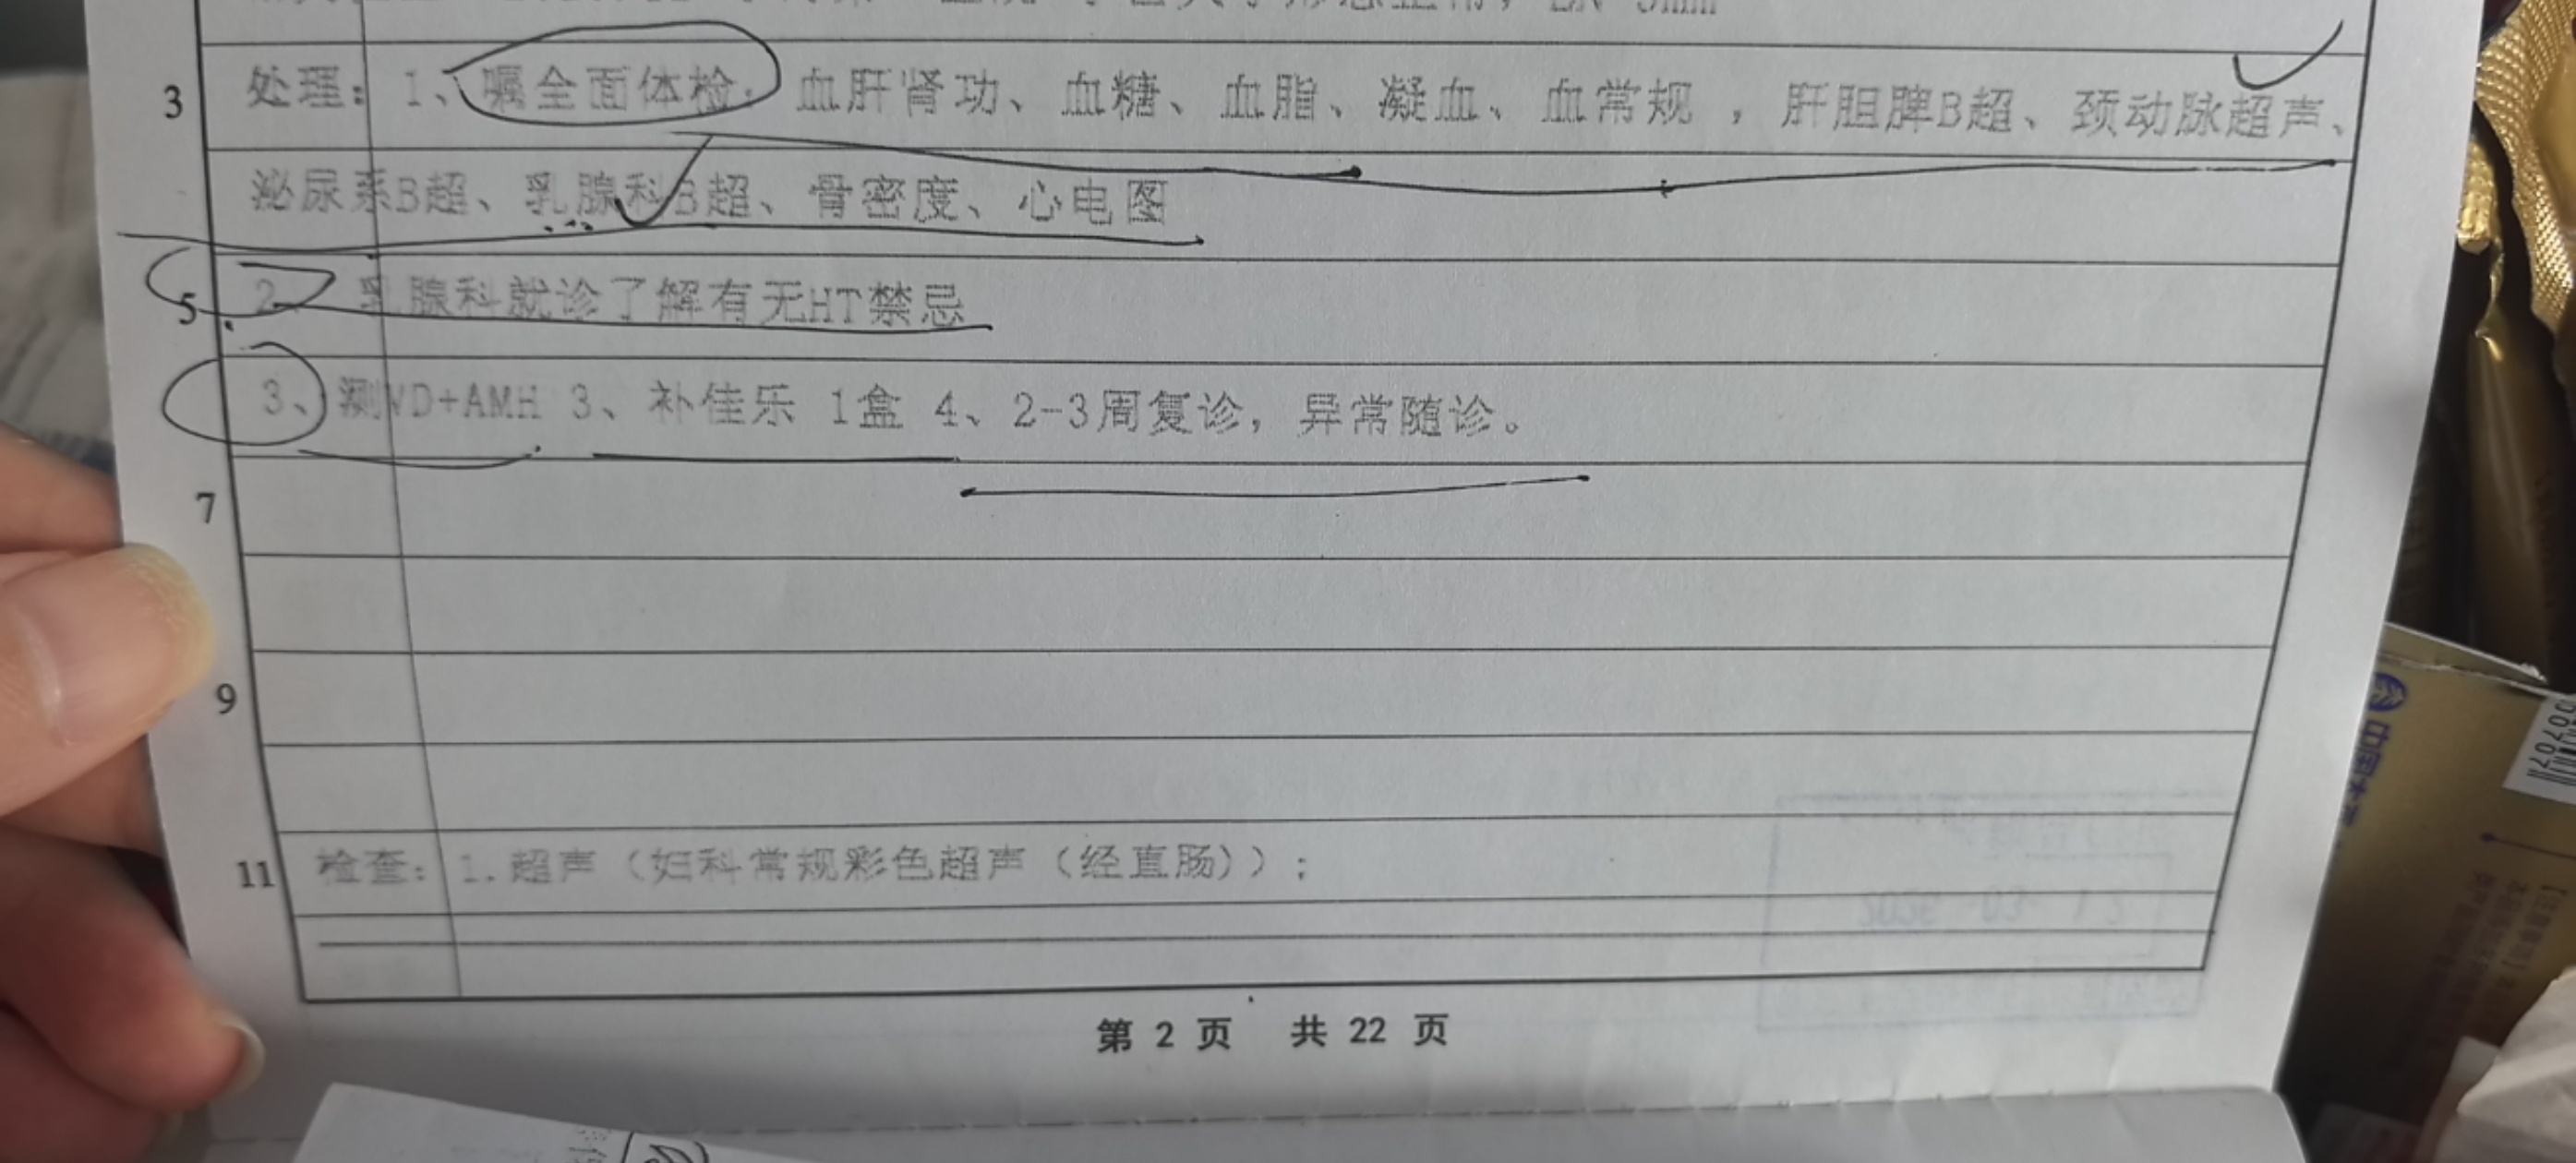 3 处理：1、嘱全面体检：血肝肾功、血糖、血脂、凝血、血常规，肝胆脾B超、颈动脉超声、
泌尿系B超、乳腺科B超、骨密度、心电图
5 2、乳腺科就诊了解有无HT禁忌
3、测VD+AMH 3、补佳乐 1盒 4、2-3周复诊，异常随诊。
7
9
11 检查：1.超声（妇科常规彩色超声（经直肠））；
第 2 页 共 22 页